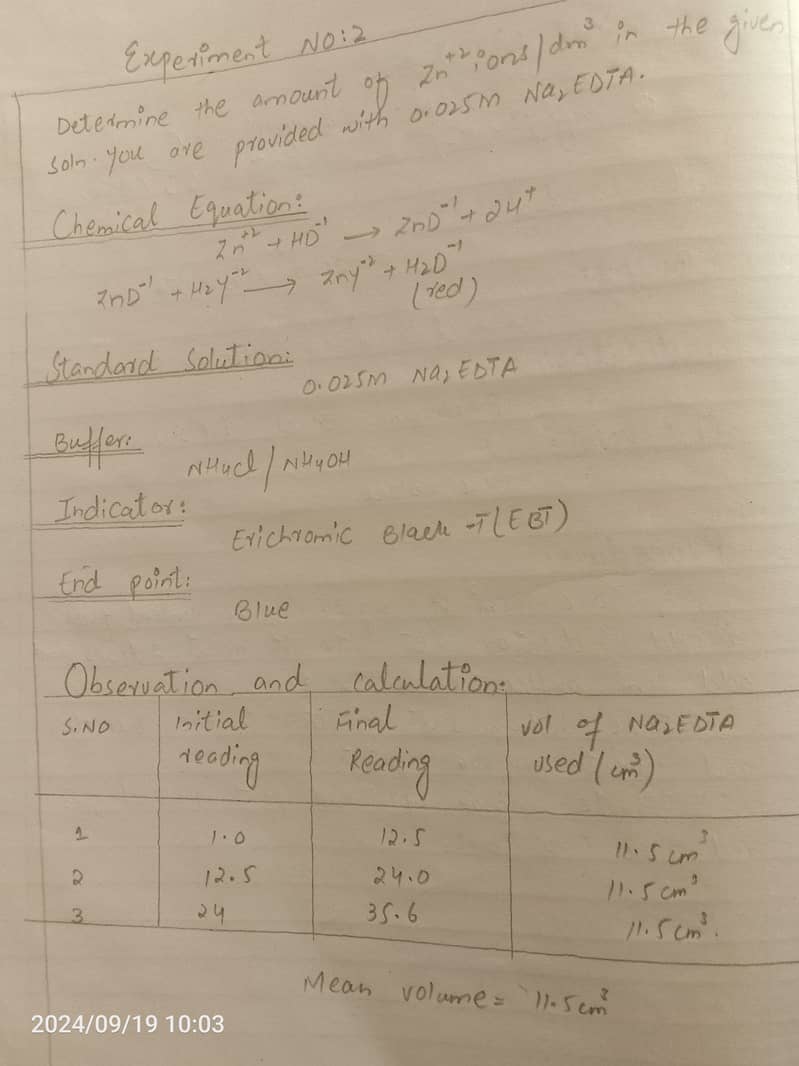 Experiment NO:2
Determine the amount of Zn⁺² ions/dm³ in the given
soln. You are provided with 0.025M Na₂EDTA.
Chemical Equation:
Zn⁺² + HD⁻¹ → ZnD⁻¹ + 2H⁺
ZnD⁻¹ + H₂Y⁻² → ZnY⁻² + H₂D⁻¹
(red)
Standard Solution:
0.025M Na₂EDTA
Buffer:
NH₄Cl / NH₄OH
Indicator:
Erichromic Black -T(EBT)
End point:
Blue
Observation and calculation:
S.NO Initial reading Final Reading vol of Na₂EDTA used (cm³)
1 1.0 12.5 11.5 cm³
2 12.5 24.0 11.5 cm³
3 24 35.6 11.5 cm³.
Mean volume = 11.5 cm³
2024/09/19 10:03